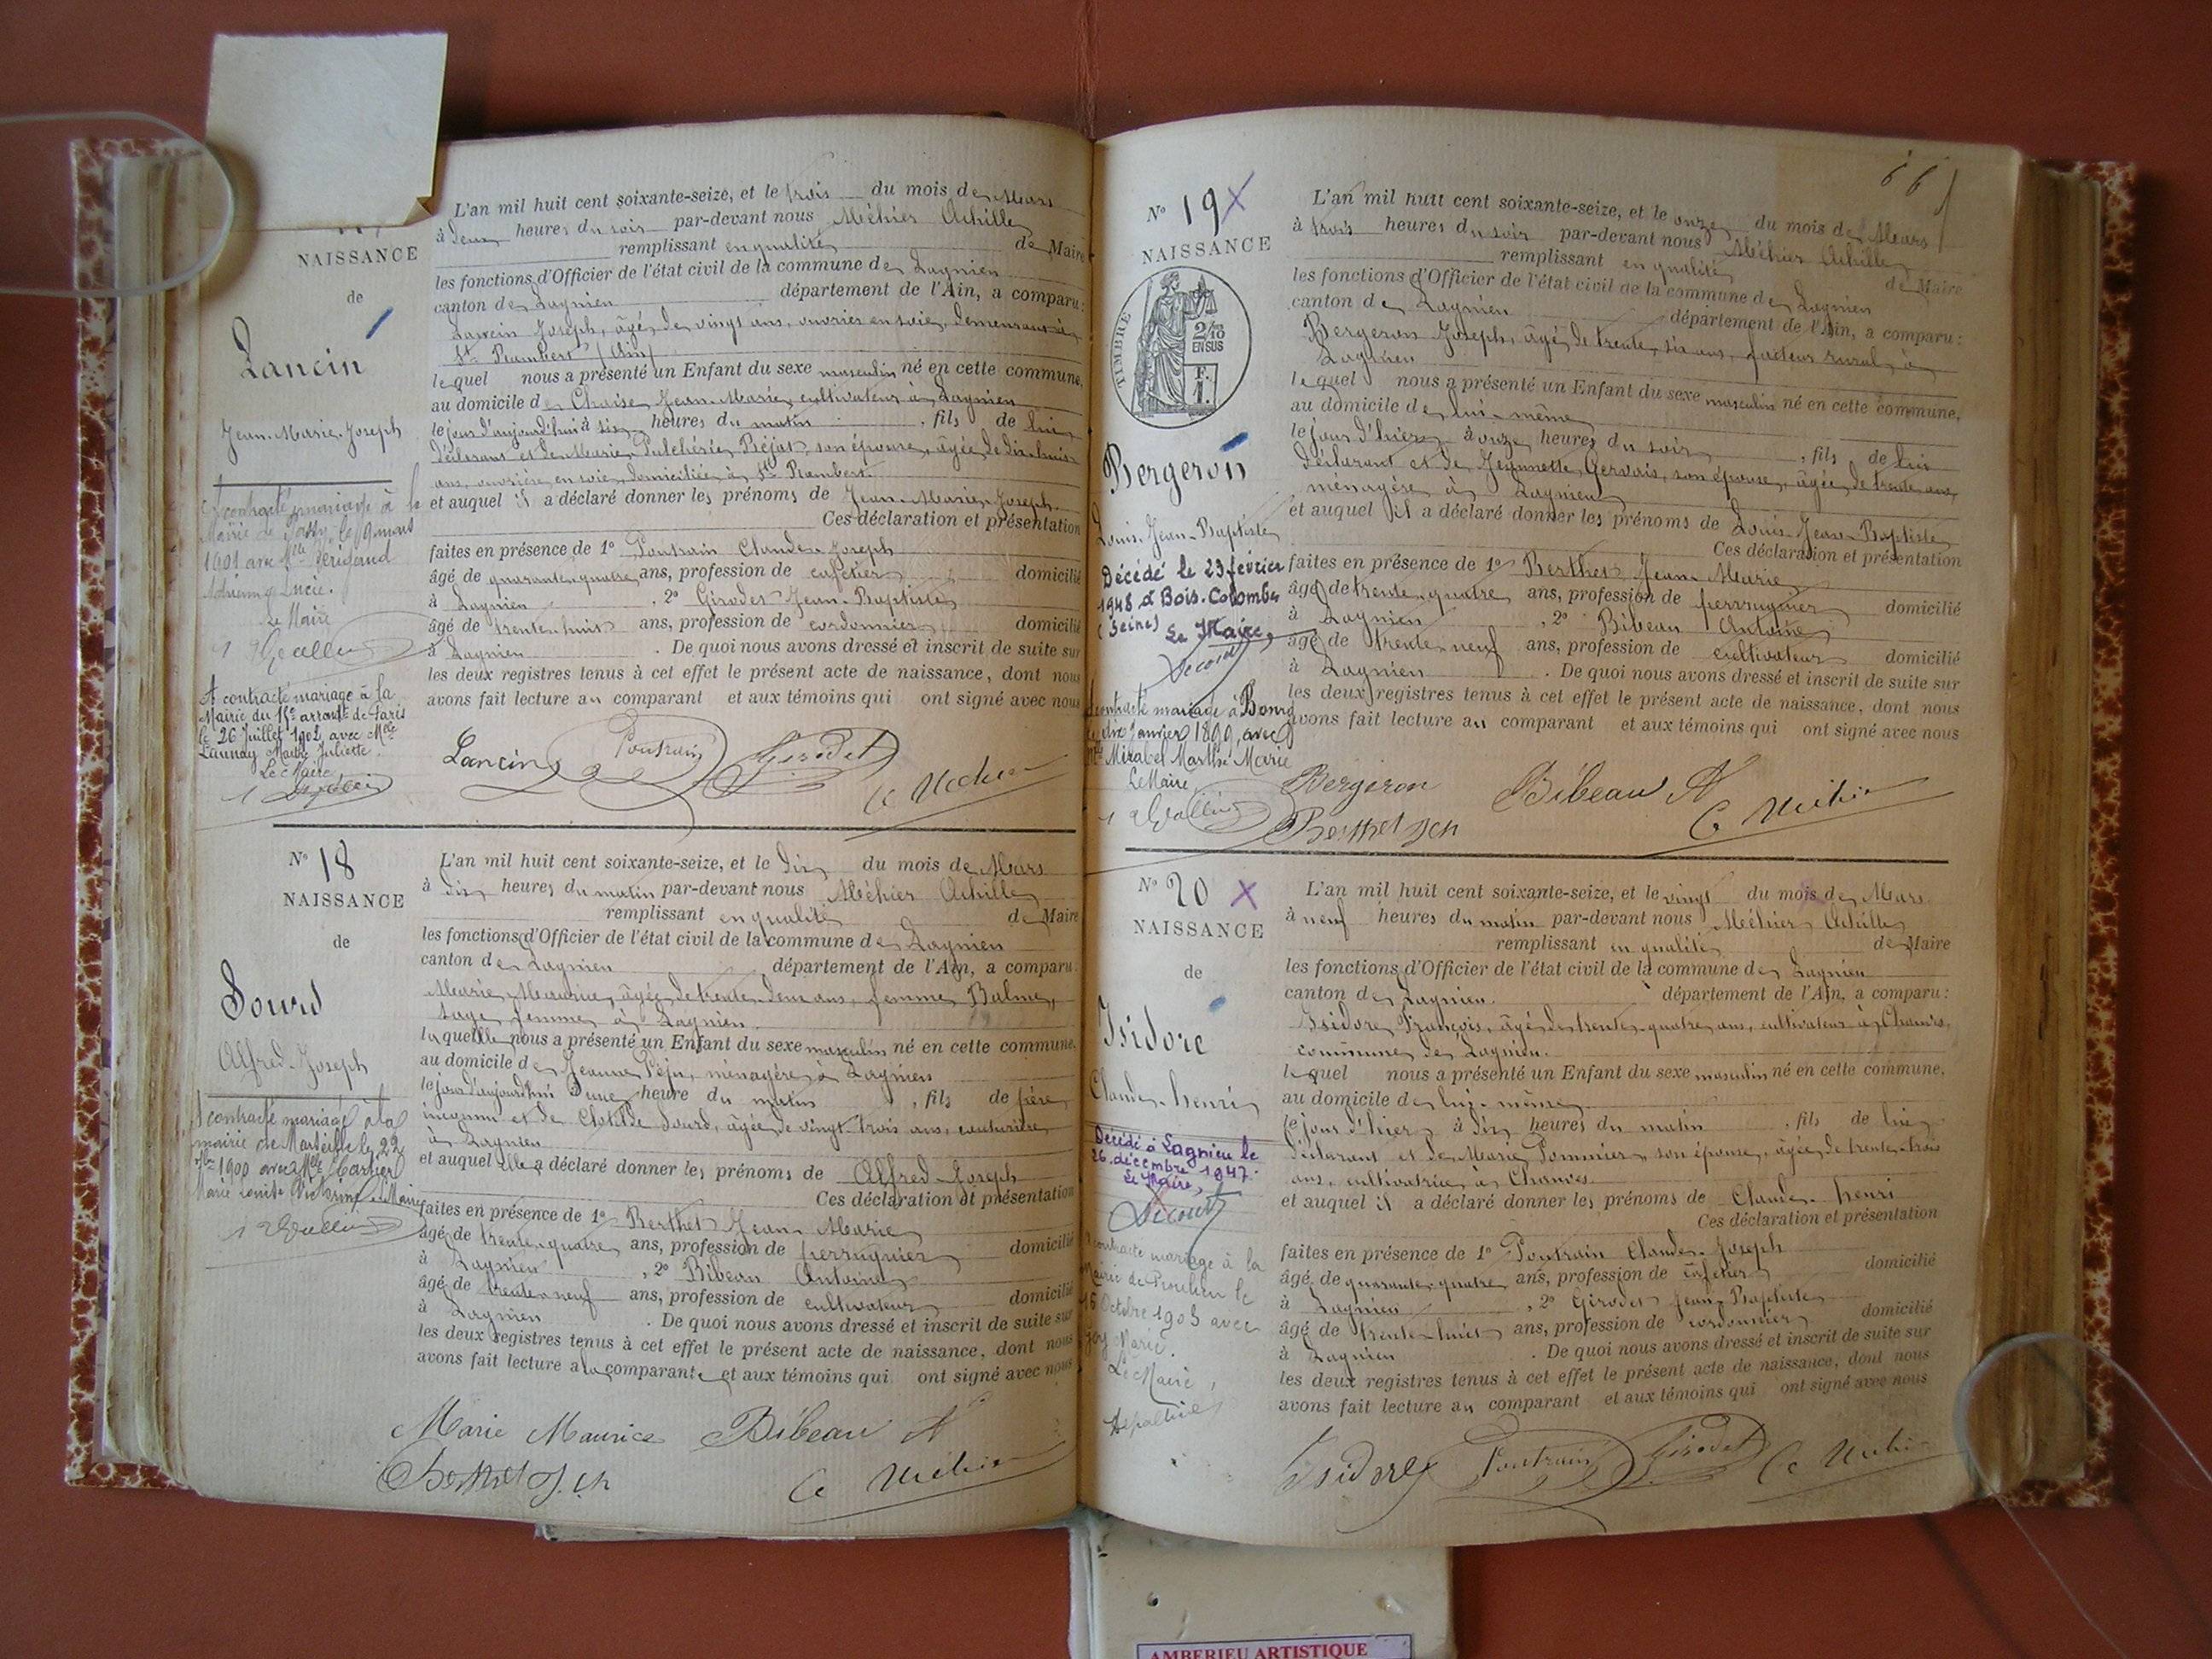 NAISSANCE
de
Lancin
Jean-Marie-Joseph
A contracté mariage à la
Mairie de le 9 mars
1901 avec Mlle Perigaud
Adrienne Lucie.
Le Maire
A contracté mariage à la
Mairie du 15e arrondt de Paris
le 26 Juillet 1902 avec Mlle
Launay Marthe Juliette.
Le Maire
L'an mil huit cent soixante-seize, et le trois du mois de Mars
à deux heures du soir par-devant nous Méhier Achille
remplissant en qualité de Maire
les fonctions d'Officier de l'état civil de la commune de Lagnieu
canton de Lagnieu département de l'Ain, a comparu:
Lancin Joseph, âgé de vingt ans, ouvrier en soie, demeurant à
St Rambert (Ain)
lequel nous a présenté un Enfant du sexe masculin né en cette commune,
au domicile de Chaise Jean-Marie, cultivateur à Lagnieu
le jour d'aujourd'hui à six heures du matin, fils de lui
déclarant et de Marie Pulchérie Béjat, son épouse, âgée de dix-huit
ans, ouvrière en soie, domiciliée à St Rambert.
et auquel il a déclaré donner les prénoms de Jean-Marie-Joseph.
Ces déclaration et présentation
faites en présence de 1º Poutrain Claude-Joseph
âgé de quarante-quatre ans, profession de cafetier domicilié
à Lagnieu, 2º Girodet Jean-Baptiste
âgé de trente-huit ans, profession de cordonnier domicilié
à Lagnieu. De quoi nous avons dressé et inscrit de suite sur
les deux registres tenus à cet effet le présent acte de naissance, dont nous
avons fait lecture au comparant et aux témoins qui ont signé avec nous
Lancin Poutrain Girodet
A Méhier
Nº 18
NAISSANCE
de
Sourd
Alfred-Joseph
A contracté mariage à la
mairie de Marseille le 22
1900 avec Mlle
Marie Louise Le Maire
L'an mil huit cent soixante-seize, et le dix du mois de Mars
à dix heures du matin par-devant nous Méhier Achille
remplissant en qualité de Maire
les fonctions d'Officier de l'état civil de la commune de Lagnieu
canton de Lagnieu département de l'Ain, a comparu:
Marie Maurice, âgée de trente-deux ans, femme Balme,
sage-femme à Lagnieu.
laquelle nous a présenté un Enfant du sexe masculin né en cette commune,
au domicile de Jeanne Péju, ménagère à Lagnieu
le jour d'aujourd'hui à une heure du matin, fils de père
inconnu et de Clotilde Sourd, âgée de vingt-trois ans, couturière
à Lagnieu
et auquel elle a déclaré donner les prénoms de Alfred-Joseph
Ces déclaration et présentation
faites en présence de 1º Berthet Jean Marie
âgé de trente-quatre ans, profession de perruquier domicilié
à Lagnieu, 2º Bibeau Antoine
âgé de trente-neuf ans, profession de cultivateur domicilié
à Lagnieu. De quoi nous avons dressé et inscrit de suite sur
les deux registres tenus à cet effet le présent acte de naissance, dont nous
avons fait lecture a la comparante et aux témoins qui ont signé avec nous
Marie Maurice Bibeau A
Berthet J. M A Méhier
66
Nº 19 X
NAISSANCE
TIMBRE
2/10
EN SUS
F.
1.
Bergeron
Louis-Jean-Baptiste
Décédé le 23 février
1948 à Bois-Colombes
(Seine)
Le Maire,
Secout
contracté mariage à Bourg
le dix Janvier 1899, avec
Mlle Mirabel Marthe Marie
Le Maire
L'an mil huit cent soixante-seize, et le onze du mois de Mars
à trois heures du soir par-devant nous Méhier Achille
remplissant en qualité de Maire
les fonctions d'Officier de l'état civil de la commune de Lagnieu
canton de Lagnieu département de l'Ain, a comparu:
Bergeron Joseph, âgé de trente-six ans, facteur rural, à
Lagnieu
lequel nous a présenté un Enfant du sexe masculin né en cette commune,
au domicile de lui-même
le jour d'hier à onze heures du soir, fils de lui
déclarant et de Jeannette Gervais, son épouse, âgée de trente ans,
ménagère à Lagnieu
et auquel il a déclaré donner les prénoms de Louis-Jean-Baptiste
Ces déclaration et présentation
faites en présence de 1º Berthet Jean-Marie
âgé de trente-quatre ans, profession de perruquier domicilié
à Lagnieu, 2º Bibeau Antoine
âgé de trente-neuf ans, profession de cultivateur domicilié
à Lagnieu. De quoi nous avons dressé et inscrit de suite sur
les deux registres tenus à cet effet le présent acte de naissance, dont nous
avons fait lecture au comparant et aux témoins qui ont signé avec nous
Bergeron Bibeau A
Berthet J M A Méhier
Nº 20 X
NAISSANCE
de
Isidore
Claude-henri
Décédé à Lagnieu le
26 décembre 1947.
Le Maire,
Secout
contracté mariage à la
Mairie de Proulieu le
16 Octobre 1903 avec
Marie.
Le Maire,
L'an mil huit cent soixante-seize, et le vingt du mois de Mars
à neuf heures du matin par-devant nous Méhier Achille
remplissant en qualité de Maire
les fonctions d'Officier de l'état civil de la commune de Lagnieu
canton de Lagnieu. département de l'Ain, a comparu:
Isidore François, âgé de trente-quatre ans, cultivateur à Chanves,
commune de Lagnieu.
lequel nous a présenté un Enfant du sexe masculin né en cette commune,
au domicile de lui-même
le jour d'hier à dix heures du matin, fils de lui
déclarant et de Marie Pommier, son épouse, âgée de trente-trois
ans, cultivatrice à Chanves
et auquel il a déclaré donner les prénoms de Claude-henri
Ces déclaration et présentation
faites en présence de 1º Poutrain Claude-Joseph
âgé de quarante-quatre ans, profession de cafetier domicilié
à Lagnieu, 2º Girodet Jean-Baptiste
âgé de trente-huit ans, profession de cordonnier domicilié
à Lagnieu. De quoi nous avons dressé et inscrit de suite sur
les deux registres tenus à cet effet le présent acte de naissance, dont nous
avons fait lecture au comparant et aux témoins qui ont signé avec nous
Isidore Poutrain Girodet A Méhier
AMBERIEU ARTISTIQUE